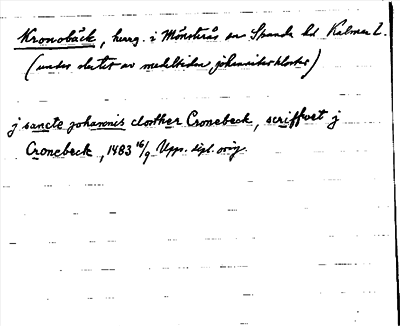 Kronobäck, herrg. i Mönsterås sn Stranda hd Kalmar L.
(under slutet av medeltiden johanniterkloster)
j sancte johannis closther Cronebeck, scriffwet j
Cronebeck, 1483 16/9 Upps. dipl. orig.